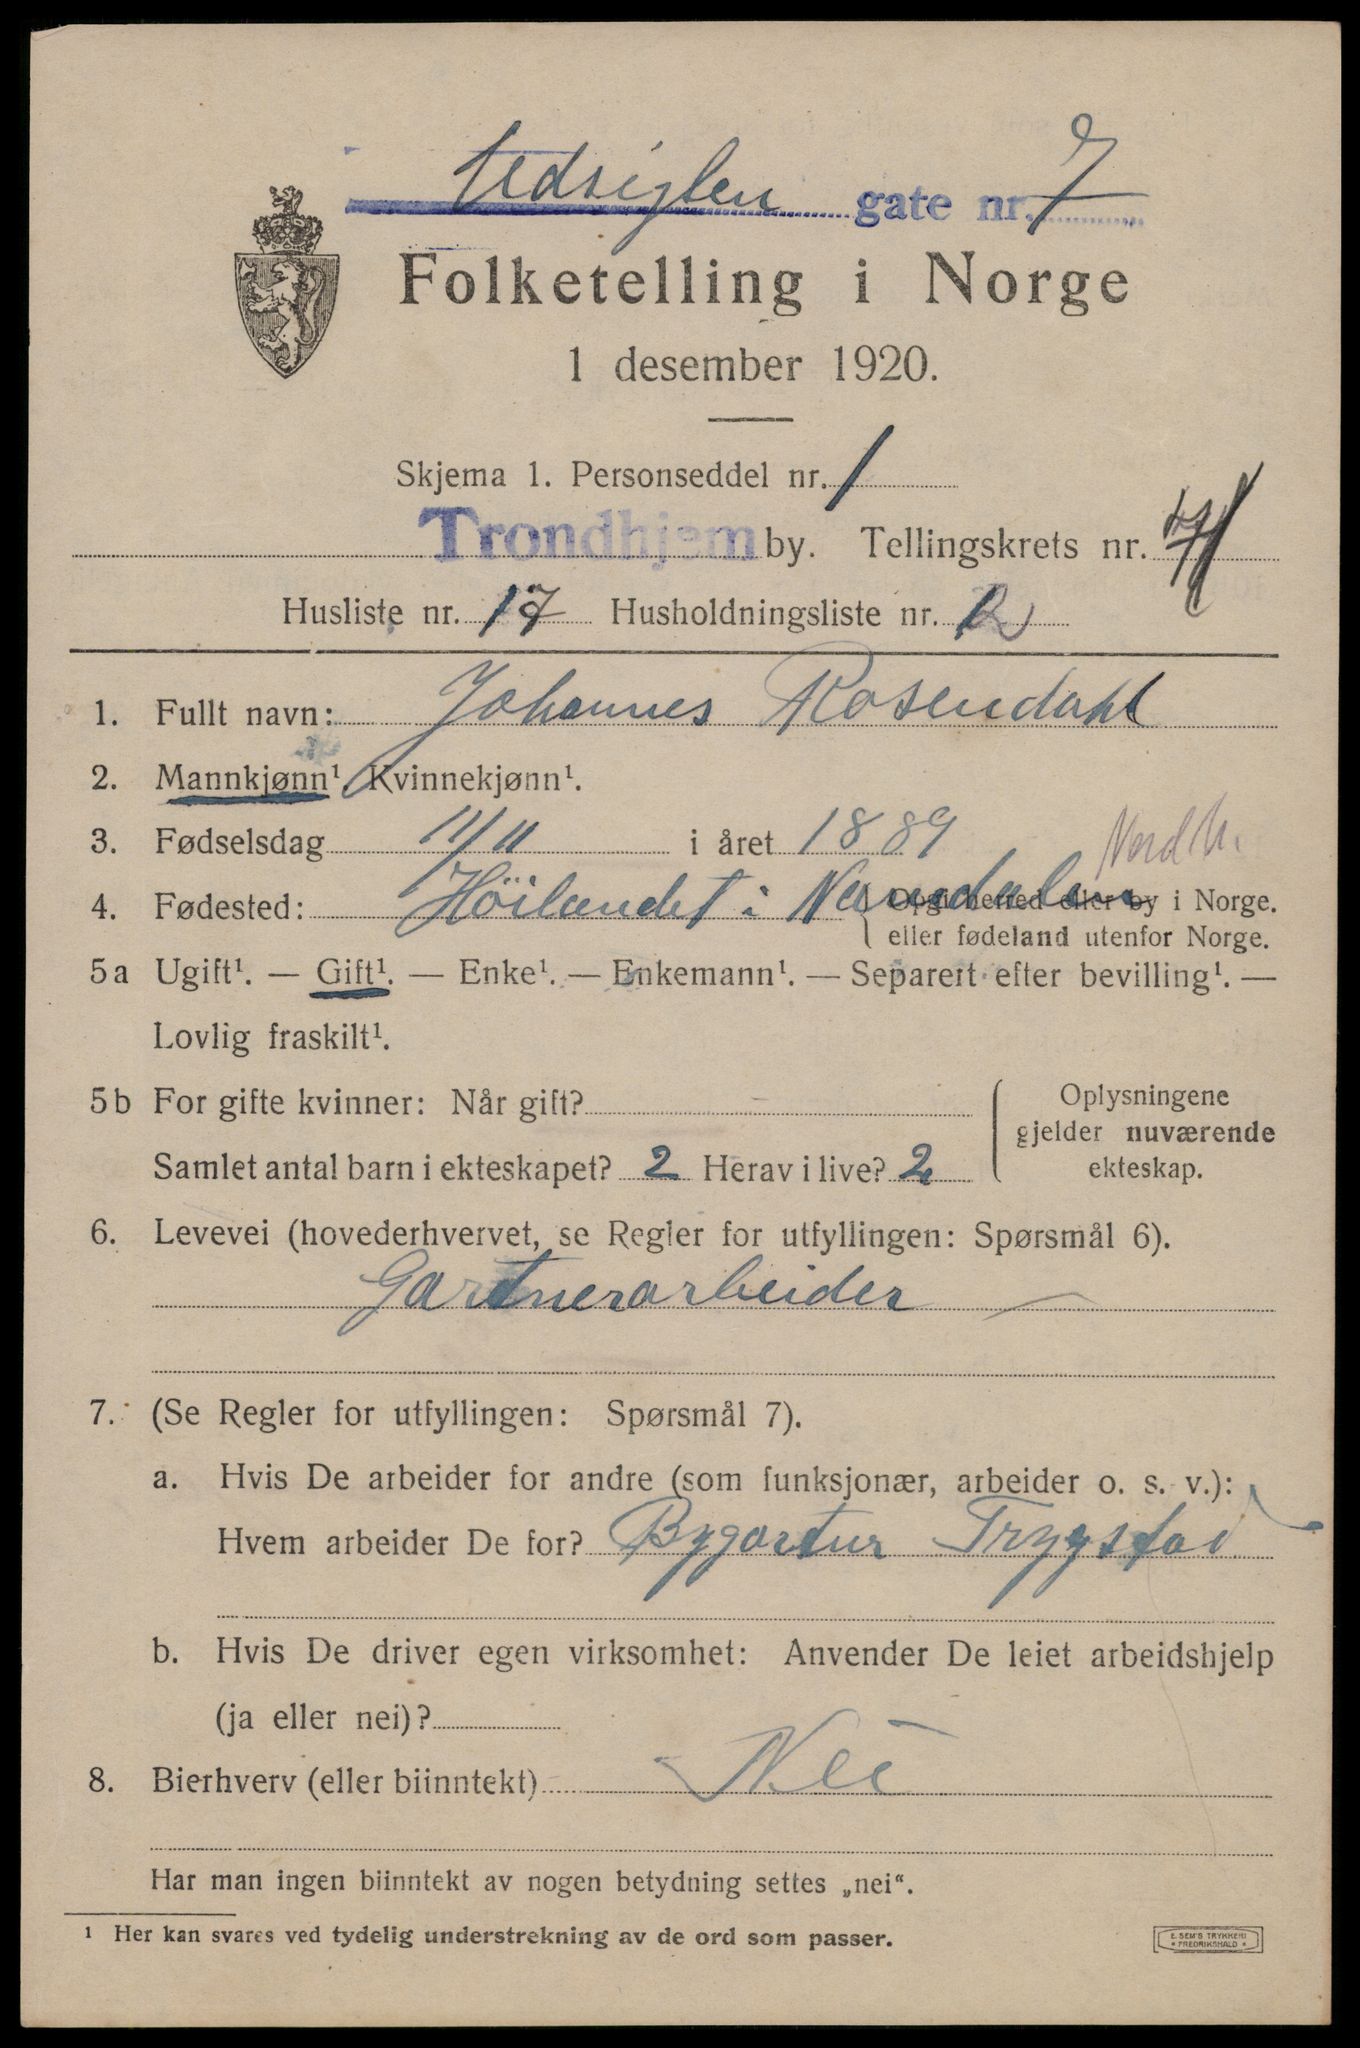 Udsiglen gate nr. 7
Folketelling i Norge
1 desember 1920.
Skjema 1. Personseddel nr. 1
Trondhjem by. Tellingskrets nr.
Husliste nr. 17 Husholdningsliste nr. 2
1. Fullt navn: Johannes Rosendahl
2. Mannkjønn¹. Kvinnekjønn¹.
3. Fødselsdag 11/11 i året 1889
Nordtr.
4. Fødested: Höilandet i Namdalen { Opgi herred eller by i Norge.
eller fødeland utenfor Norge.
5a Ugift¹. — Gift¹. — Enke¹. — Enkemann¹. — Separert efter bevilling¹. —
Lovlig fraskilt¹.
5b For gifte kvinner: Når gift?
Samlet antal barn i ekteskapet? 2 Herav i live? 2
Oplysningene
gjelder nuværende
ekteskap.
6. Levevei (hovederhvervet, se Regler for utfyllingen: Spørsmål 6).
Gartnerarbeider
7. (Se Regler for utfyllingen: Spørsmål 7).
a. Hvis De arbeider for andre (som funksjonær, arbeider o. s. v.):
Hvem arbeider De for? Bygartner Trygstad
b. Hvis De driver egen virksomhet: Anvender De leiet arbeidshjelp
(ja eller nei)?
8. Bierhverv (eller biinntekt) Nei
Har man ingen biinntekt av nogen betydning settes „nei“.
¹ Her kan svares ved tydelig understrekning av de ord som passer.
E. SEM'S TRYKKERI
FREDRIKSHALD